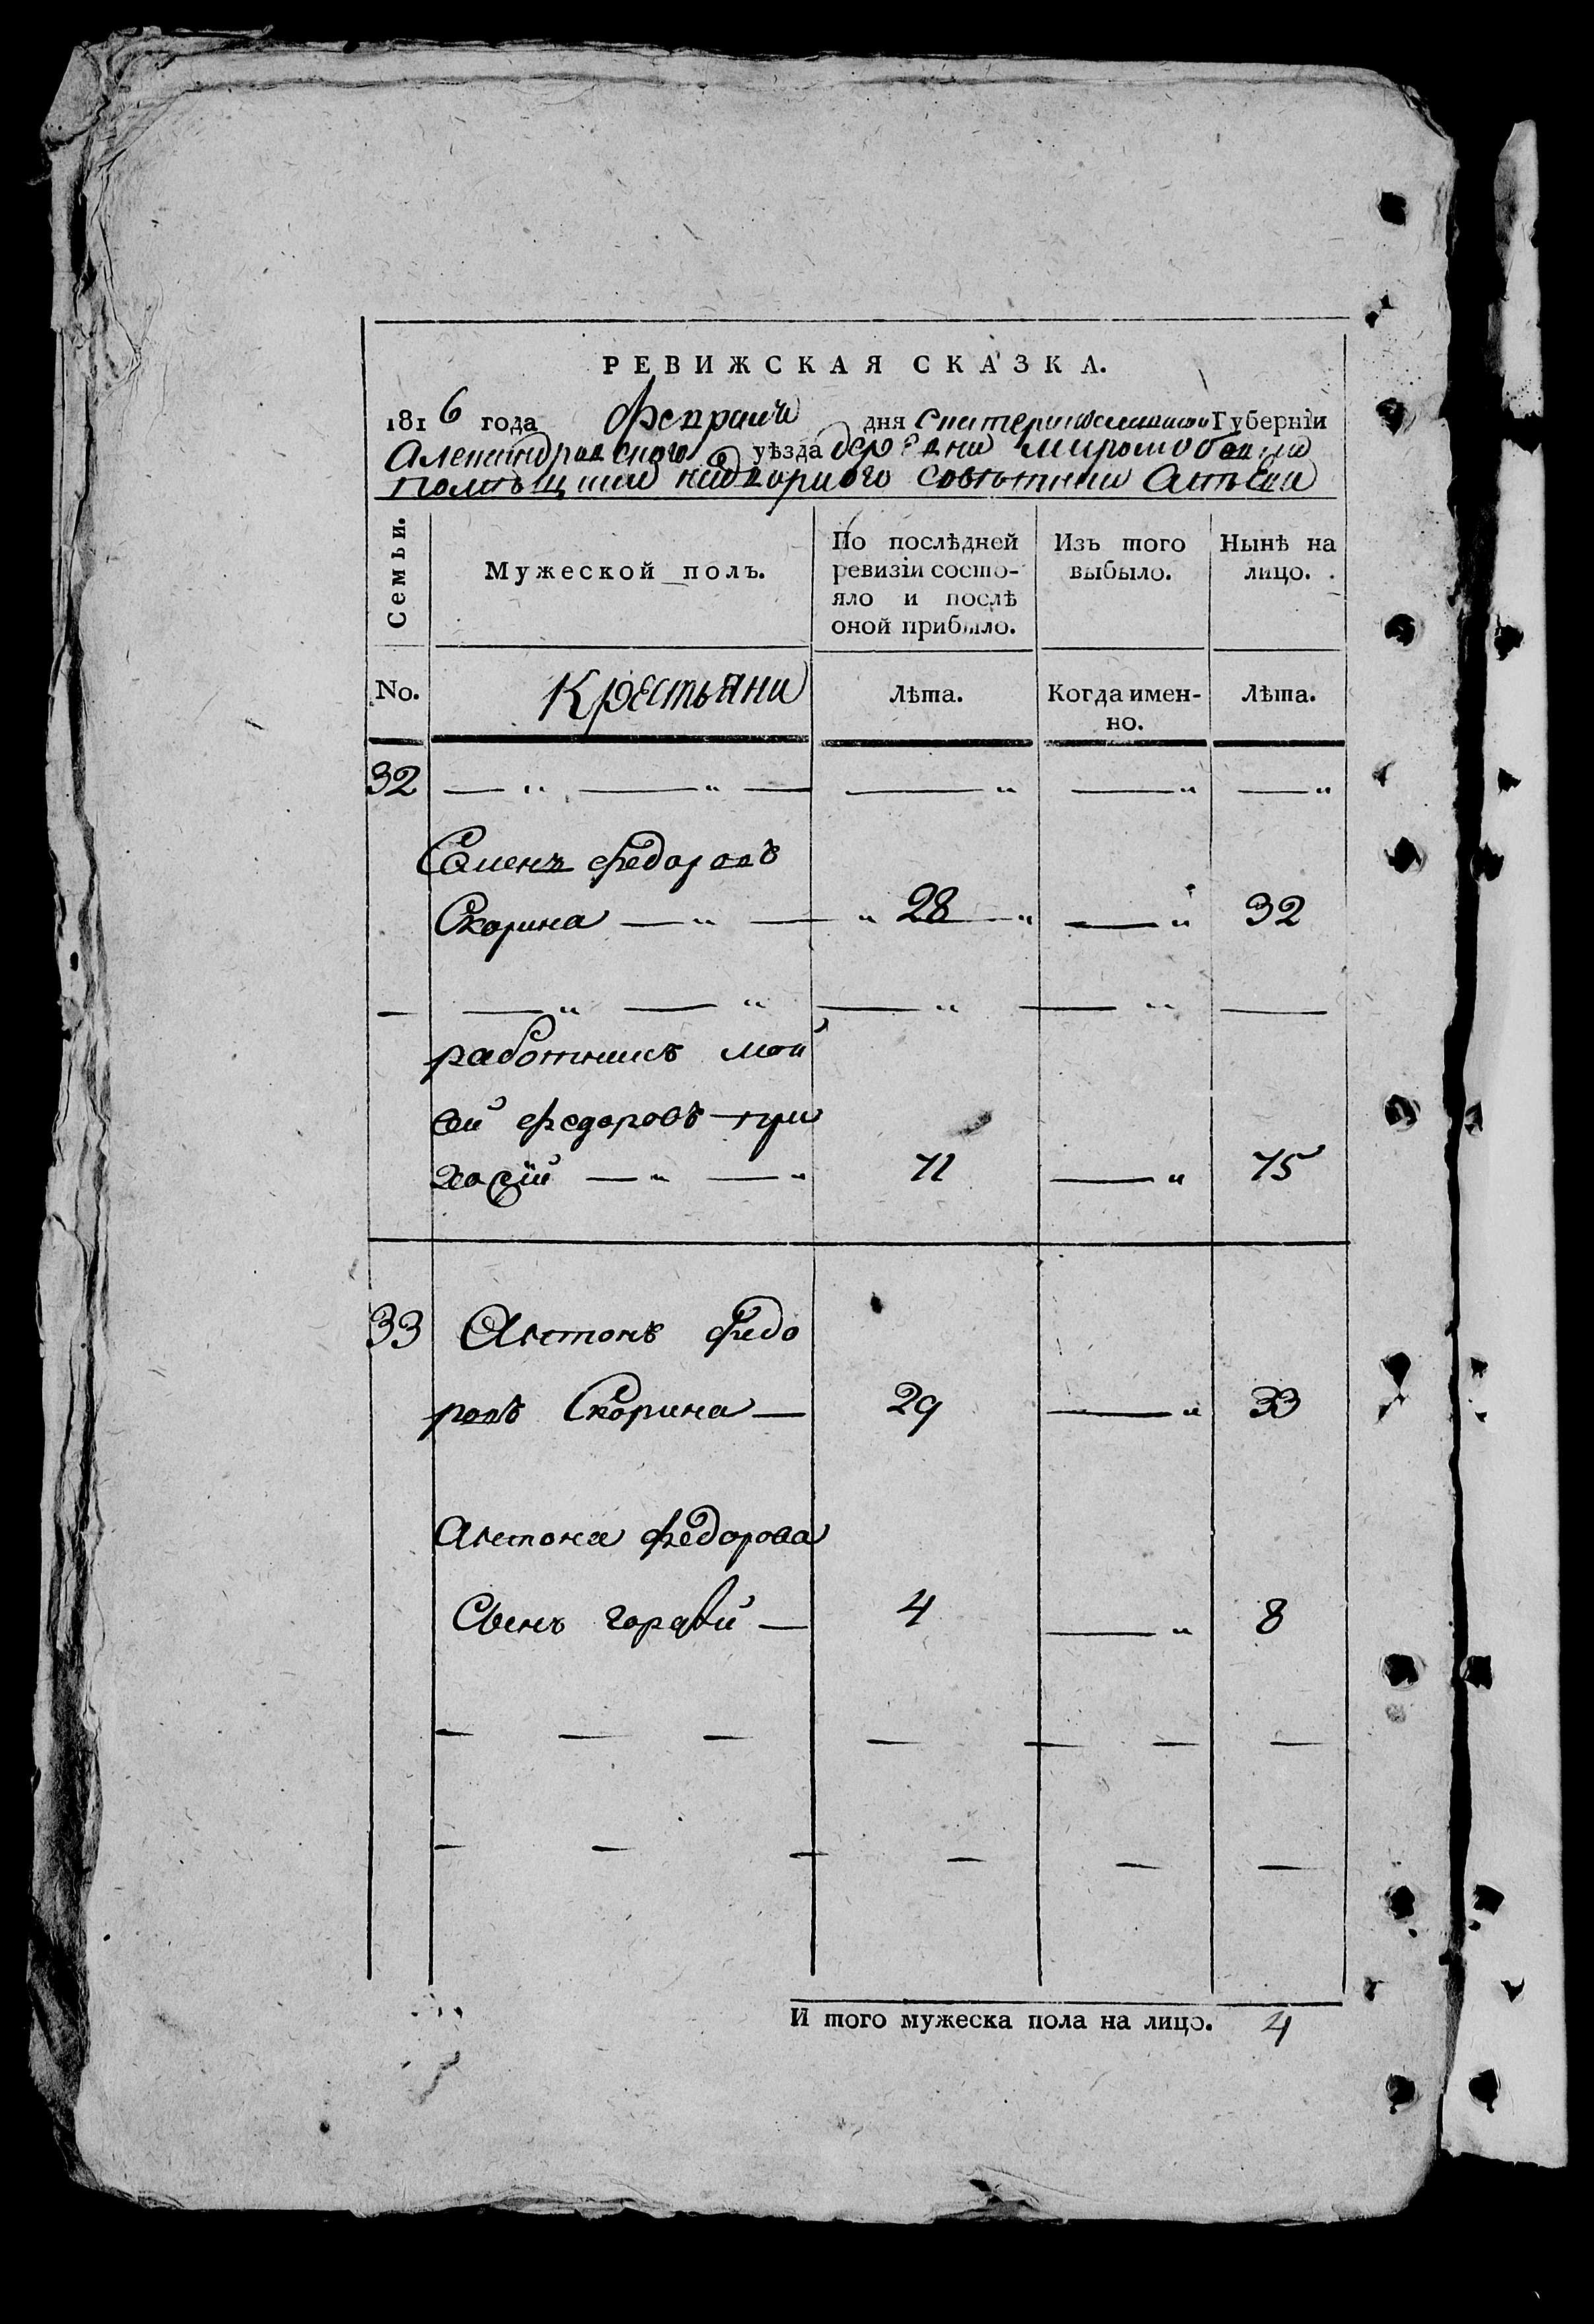 РЕВИЖСКАЯ СКАЗКА.
1816 года февраля дня Екатеринославской Губерніи
Александровского уѣзда деревни Миролюбовки
Помѣщика надворного совѣтника
Семьи. Мужеской полъ. По послѣдней ревизіи состо- яло и послѣ оной прибыло. Изъ того выбыло. Нынѣ на лицо.
No. Крестьяни Лѣта. Когда имен- но. Лѣта.
32
Семенъ Федоровъ
Скорина 28 32
работникъ мой
сѣй Федоровъ при
71 75
33 Антонъ Федо
ровъ Скорина 29 33
Антона Федорова
Сынъ Гордѣй 4 8
И того мужеска пола на лицо. 4